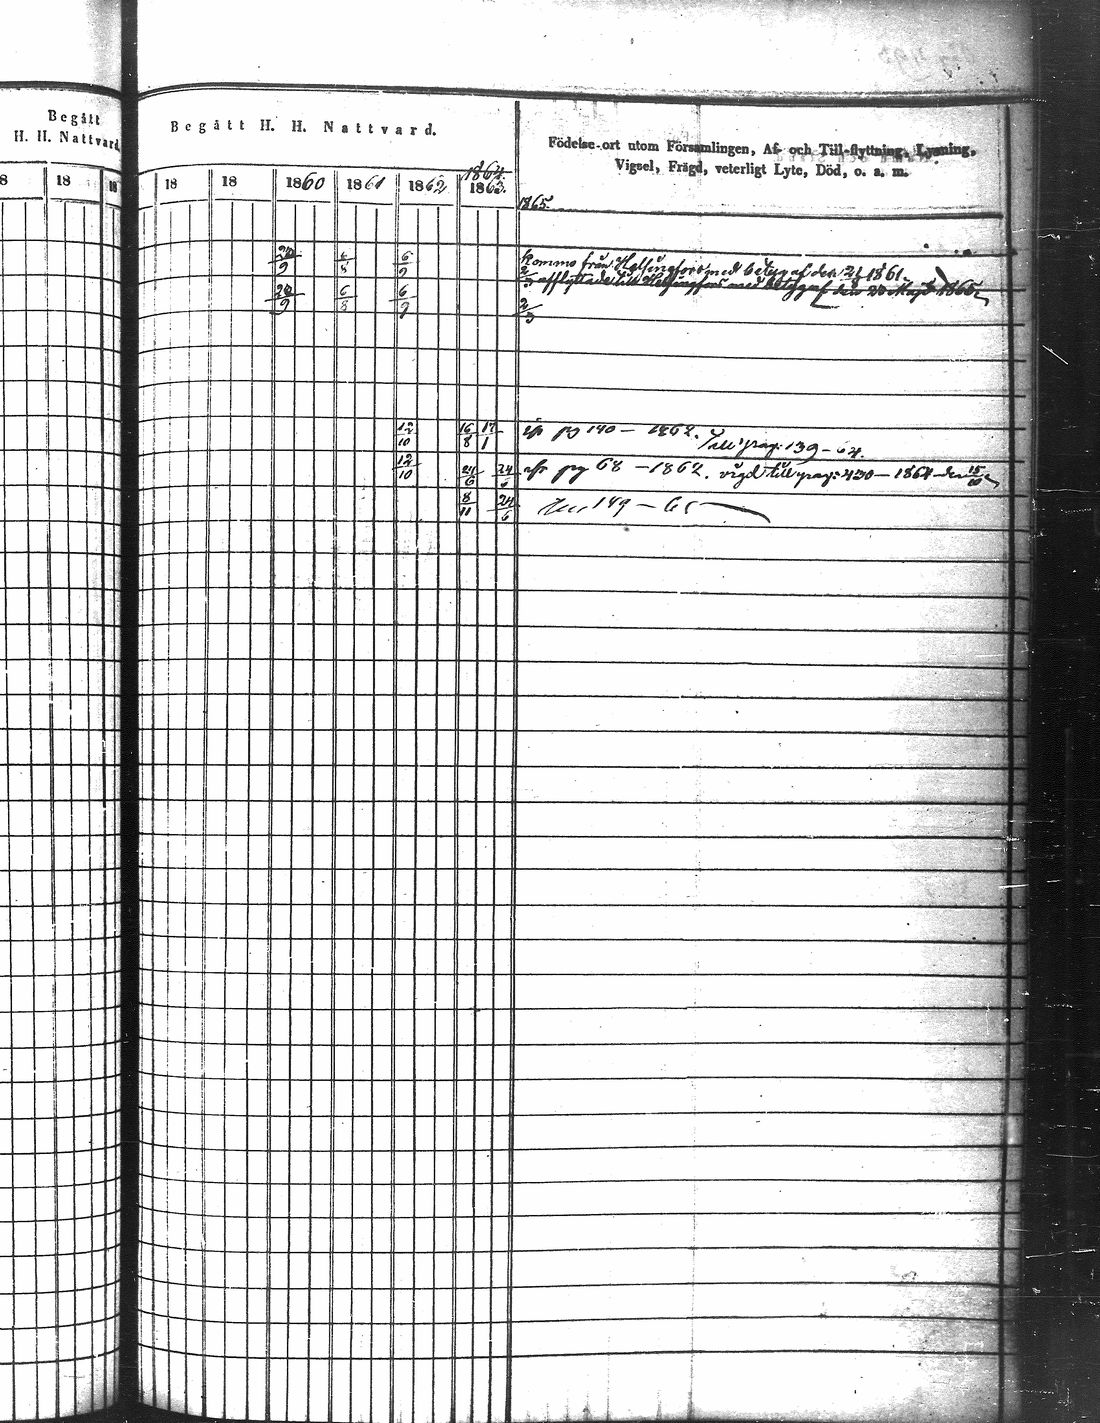 Begått
H. H. Nattvard.
Begått H. H. Nattvard.
Födelse-ort utom Församlingen, Af- och Till-flyttning, Lysning,
Vigsel, Frägd, veterligt Lyte, Död, o. a. m.
8 18 18
18 18 1860 1861 1862 1864. 1863.
1865.
20/9 6/8 6/9 komme från Helsingfors med betyg af den 1861.
2/3 afflyttade till Helsingfors med betyg af den 20 Maji 1865.
20/9 6/8 6/9 2/3
12/10 16/8 17/1 pg 140 — 1862. pag: 139 — 64.
12/10 24/6 24 pg 68 — 1862. vigd till pag: 430 — 1864 den
8/11 24/6 149 — 65